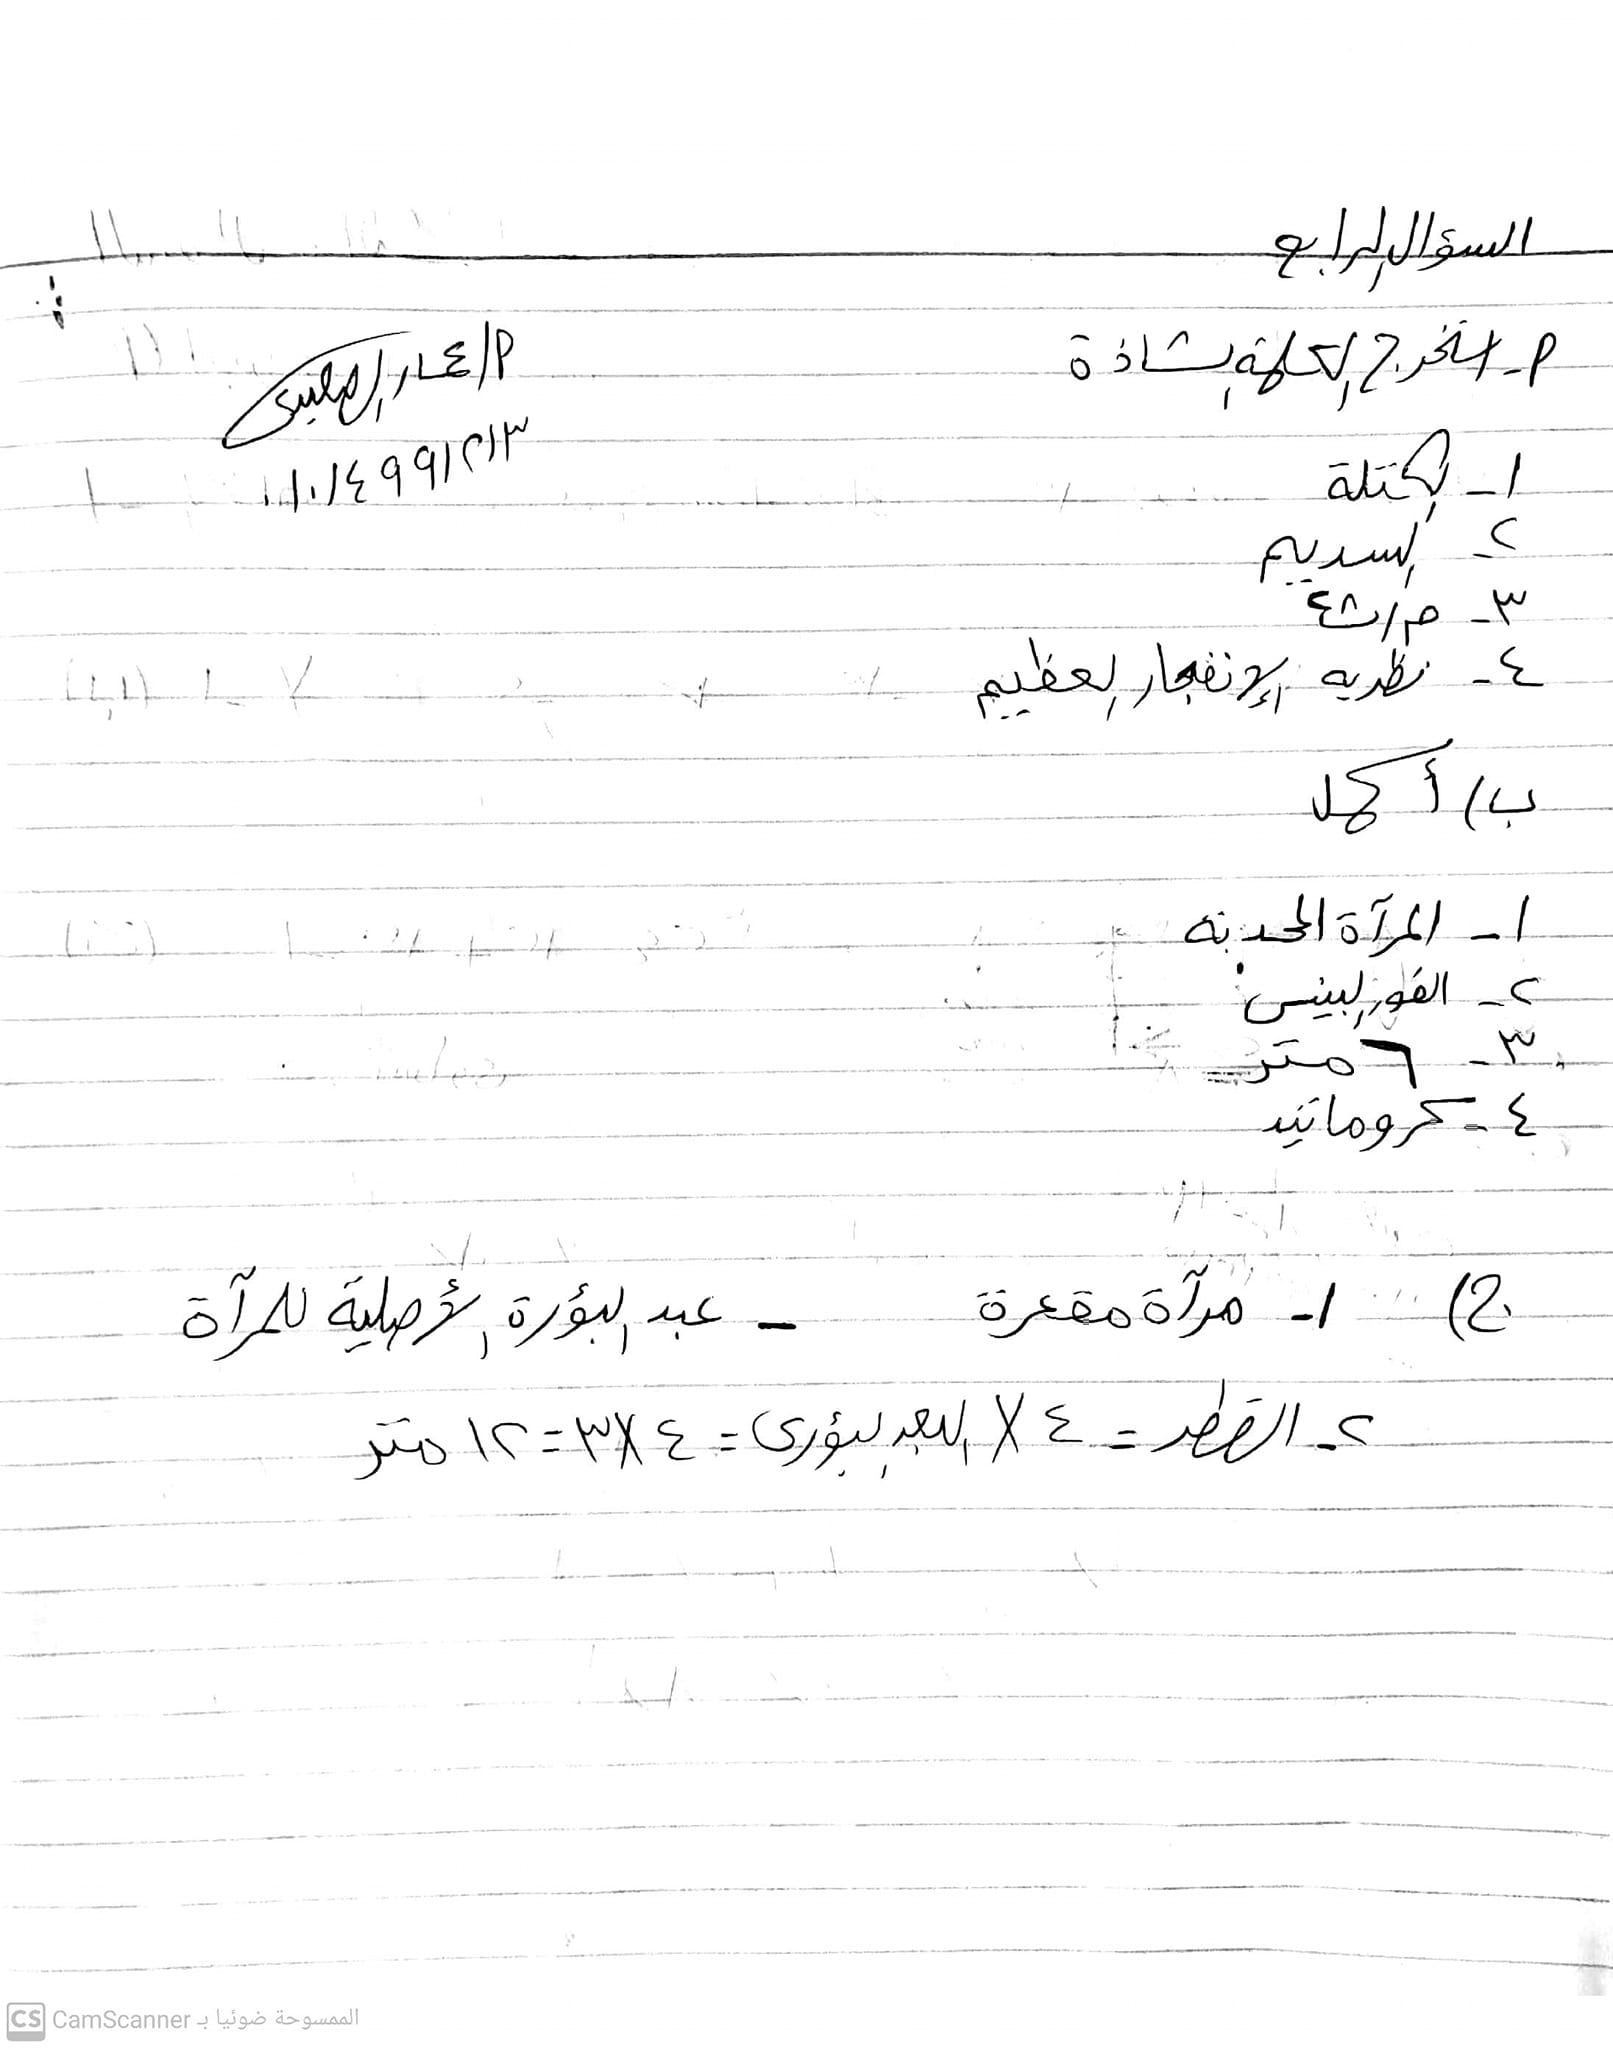 السؤال الرابع
أ- استخرج الكلمة الشاذة
أ/ عمار
١- الكتلة
٠١٠١٤٩٩١٢١٣
٢- السديم
٣- م/ث٢
٤- نظريه الإنفجار العظيم
ب) أكمل
١- المرآة المحدبه
٢- الفور لبيني
٣- ٦ متر
٤- كروماتيد
ج) ١- مرآة مقعرة - عند البؤرة الأصلية للمرآة
٢- القطر = ٤ × البعد البؤرى = ٤×٣ = ١٢ متر
CS CamScanner الممسوحة ضوئيا بـ